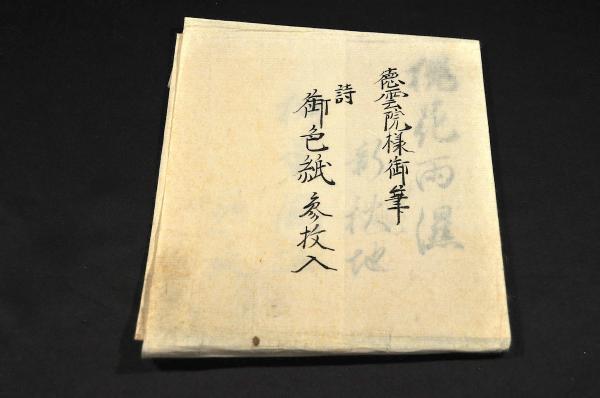 槐花雨濕
徳雲院様御筆
新秋地
詩
御色紙参枚入